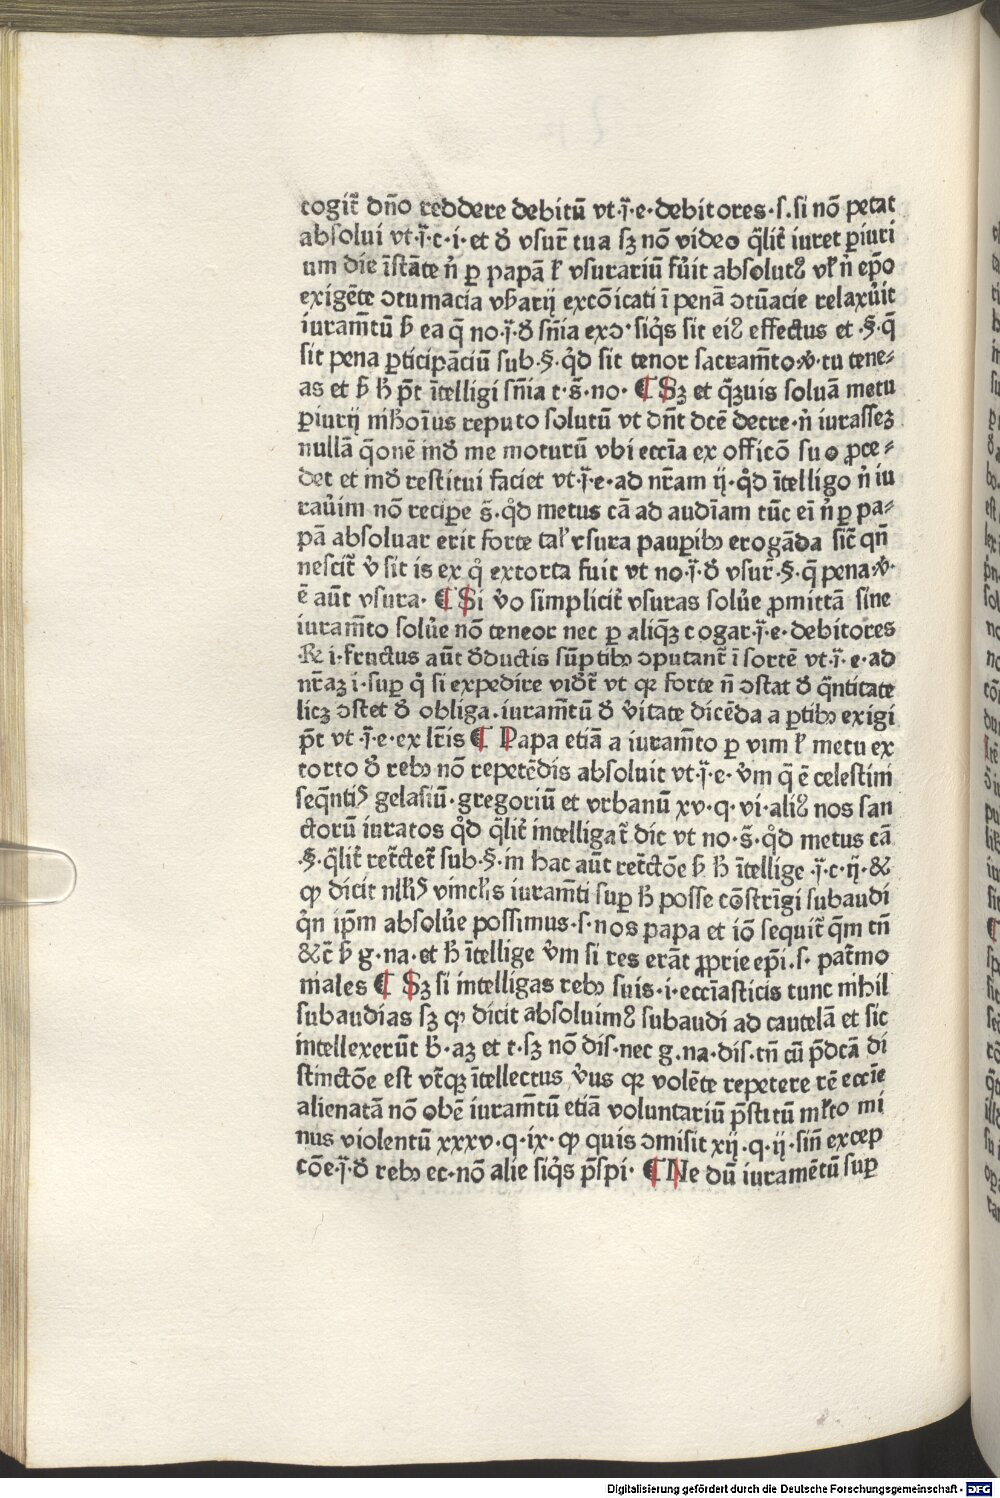 cogit᷑ dn̄o reddere debitū vt·j̄·e·debitores·s·si nō petat
absolui vt·j̄·c·i·et ꝺ̄ vsur᷑ tua sꝫ nō video q̄lit᷑ iuret ꝑiuri
um die īstāte n̄ ꝑ papā ł vsurariū fu̓it absolutꝰ vł n̄ ep̄o
exigēte ꝯtumacia vs̄arij excōicati ī penā ꝯtu̅acie relaxu̓it
iuram̄tū h̄ ea q̄ no·j̄·ꝺ̄ sn̄ia exꝯ· siq̓s sit eiꝰ effectus et ·§·q̄
sit pena ꝑticipāciū sub·§·q̓d sit tenor sacram̄to·v̓·tu tene⸗
as et h̄ h̄ p̄t ītelligi sn̄ia t·s̄·no· ¶ Sꝫ et q̄ꝫuis soluā metu
ꝑiurij nihoīus reputo solutū vt dn̄t dc̄e decre·n̄ iurasseꝫ
nullā q̄onē inꝺ̄ me moturū vbi eccīa ex officō suo ꝓce⸗
det et inꝺ̄ restitui faciet vt·j̄·e·ad nr̄am ij·q̓d ītelligo n̄ iu
rau̓im nō recipe s̄·q̓d metus cā ad audīam tūc eī n̓ ꝑ pa⸗
pā absoluar erit forte tał vsura pauꝑibꝫ erogāda sic̄ qn̄
nescit᷑ v̓ sit is ex q̓ extorta fuit vt no·j̄·ꝺ̄ vsur᷑·§·q̄ pena·v̓·
ē aūt vsura· ¶ Si v̓o simplicit᷑ vsuras solu̓e ꝓmittā sine
iuram̄to solu̓e nō teneor nec ꝑ aliq̄ꝫ cogar·j̄·e·debitores
·℞ i·fructus aūt ꝺ̄ductis sūptibꝫ ꝯputant᷑ ī sortē vt·j̄·e·ad
nr̄aꝫ i·suꝑ q̓ si expedire vid̄r᷑ vt qꝛ forte n̄ ꝯstat ꝺ̄ q̄ntitate
licꝫ ꝯstet ꝺ̄ obliga·iuram̄tū ꝺ̄ v̓itate dicēda a ꝑtibꝫ exigi
p̄t vt·j̄·e·ex lr̄is ¶ Papa etiā a iuram̄to ꝑ vim ł metu ex
torto ꝺ̄ rebꝫ nō repetēdis absoluit vt·j̄·e·v̓m q̄ ē celestini
seq̄ntis gelasiū·gregoriū et vrbanū xv·q·vi·aliꝰ nos san
ctorū iuratos q̓d q̄lit᷑ intelligat᷑ dic vt no·s̄·q̓d metus cā
·§·q̄lit᷑ ret᷑ctet᷑ sub·§·in hac aūt ret᷑ctōe h̄ h̄ ītellige·j̄·c·ij·&
ꝙ dicit nłłis vinclis iuram̄ti suꝑ h̄ posse cōstrīgi subaudi
q̓n ip̄m absolu̓e possimus·s·nos papa et iō sequit᷑ q̄m tn̄
&c̄ h̄ g·na·et h̄ ītellige v̓m si res erāt ꝓprie ep̄i·s·pat᷑mo
niales ¶ Sꝫ si intelligas rebꝫ suis·i·eccīasticis tunc nihil
subaudias sꝫ ꝙ dicit absoluimꝰ subaudi ad cautelā et sic
intellexerūt h̄·aꝫ et t·sꝫ nō dis·nec g·na·dis·tn̄ cū p̄dcā di
stinctōe est vt᷑qꝫ ītellectus v̓us qꝛ volēte repetere rē eccīe
alienatā nō obē iuram̄tū etiā voluntariū p̄stitū młto mi
nus violentū xxxv·q·ix·ꝙ quis ꝯmisit xij·q·ij·sin̄ excep
cōe·j̄·ꝺ̄ rebꝫ ec·nō alie siq̓s p̄spi· ¶ Ne dū iuramētū suꝑ
Digitalisierung gefördert durch die Deutsche Forschungsgemeinschaft - DFG